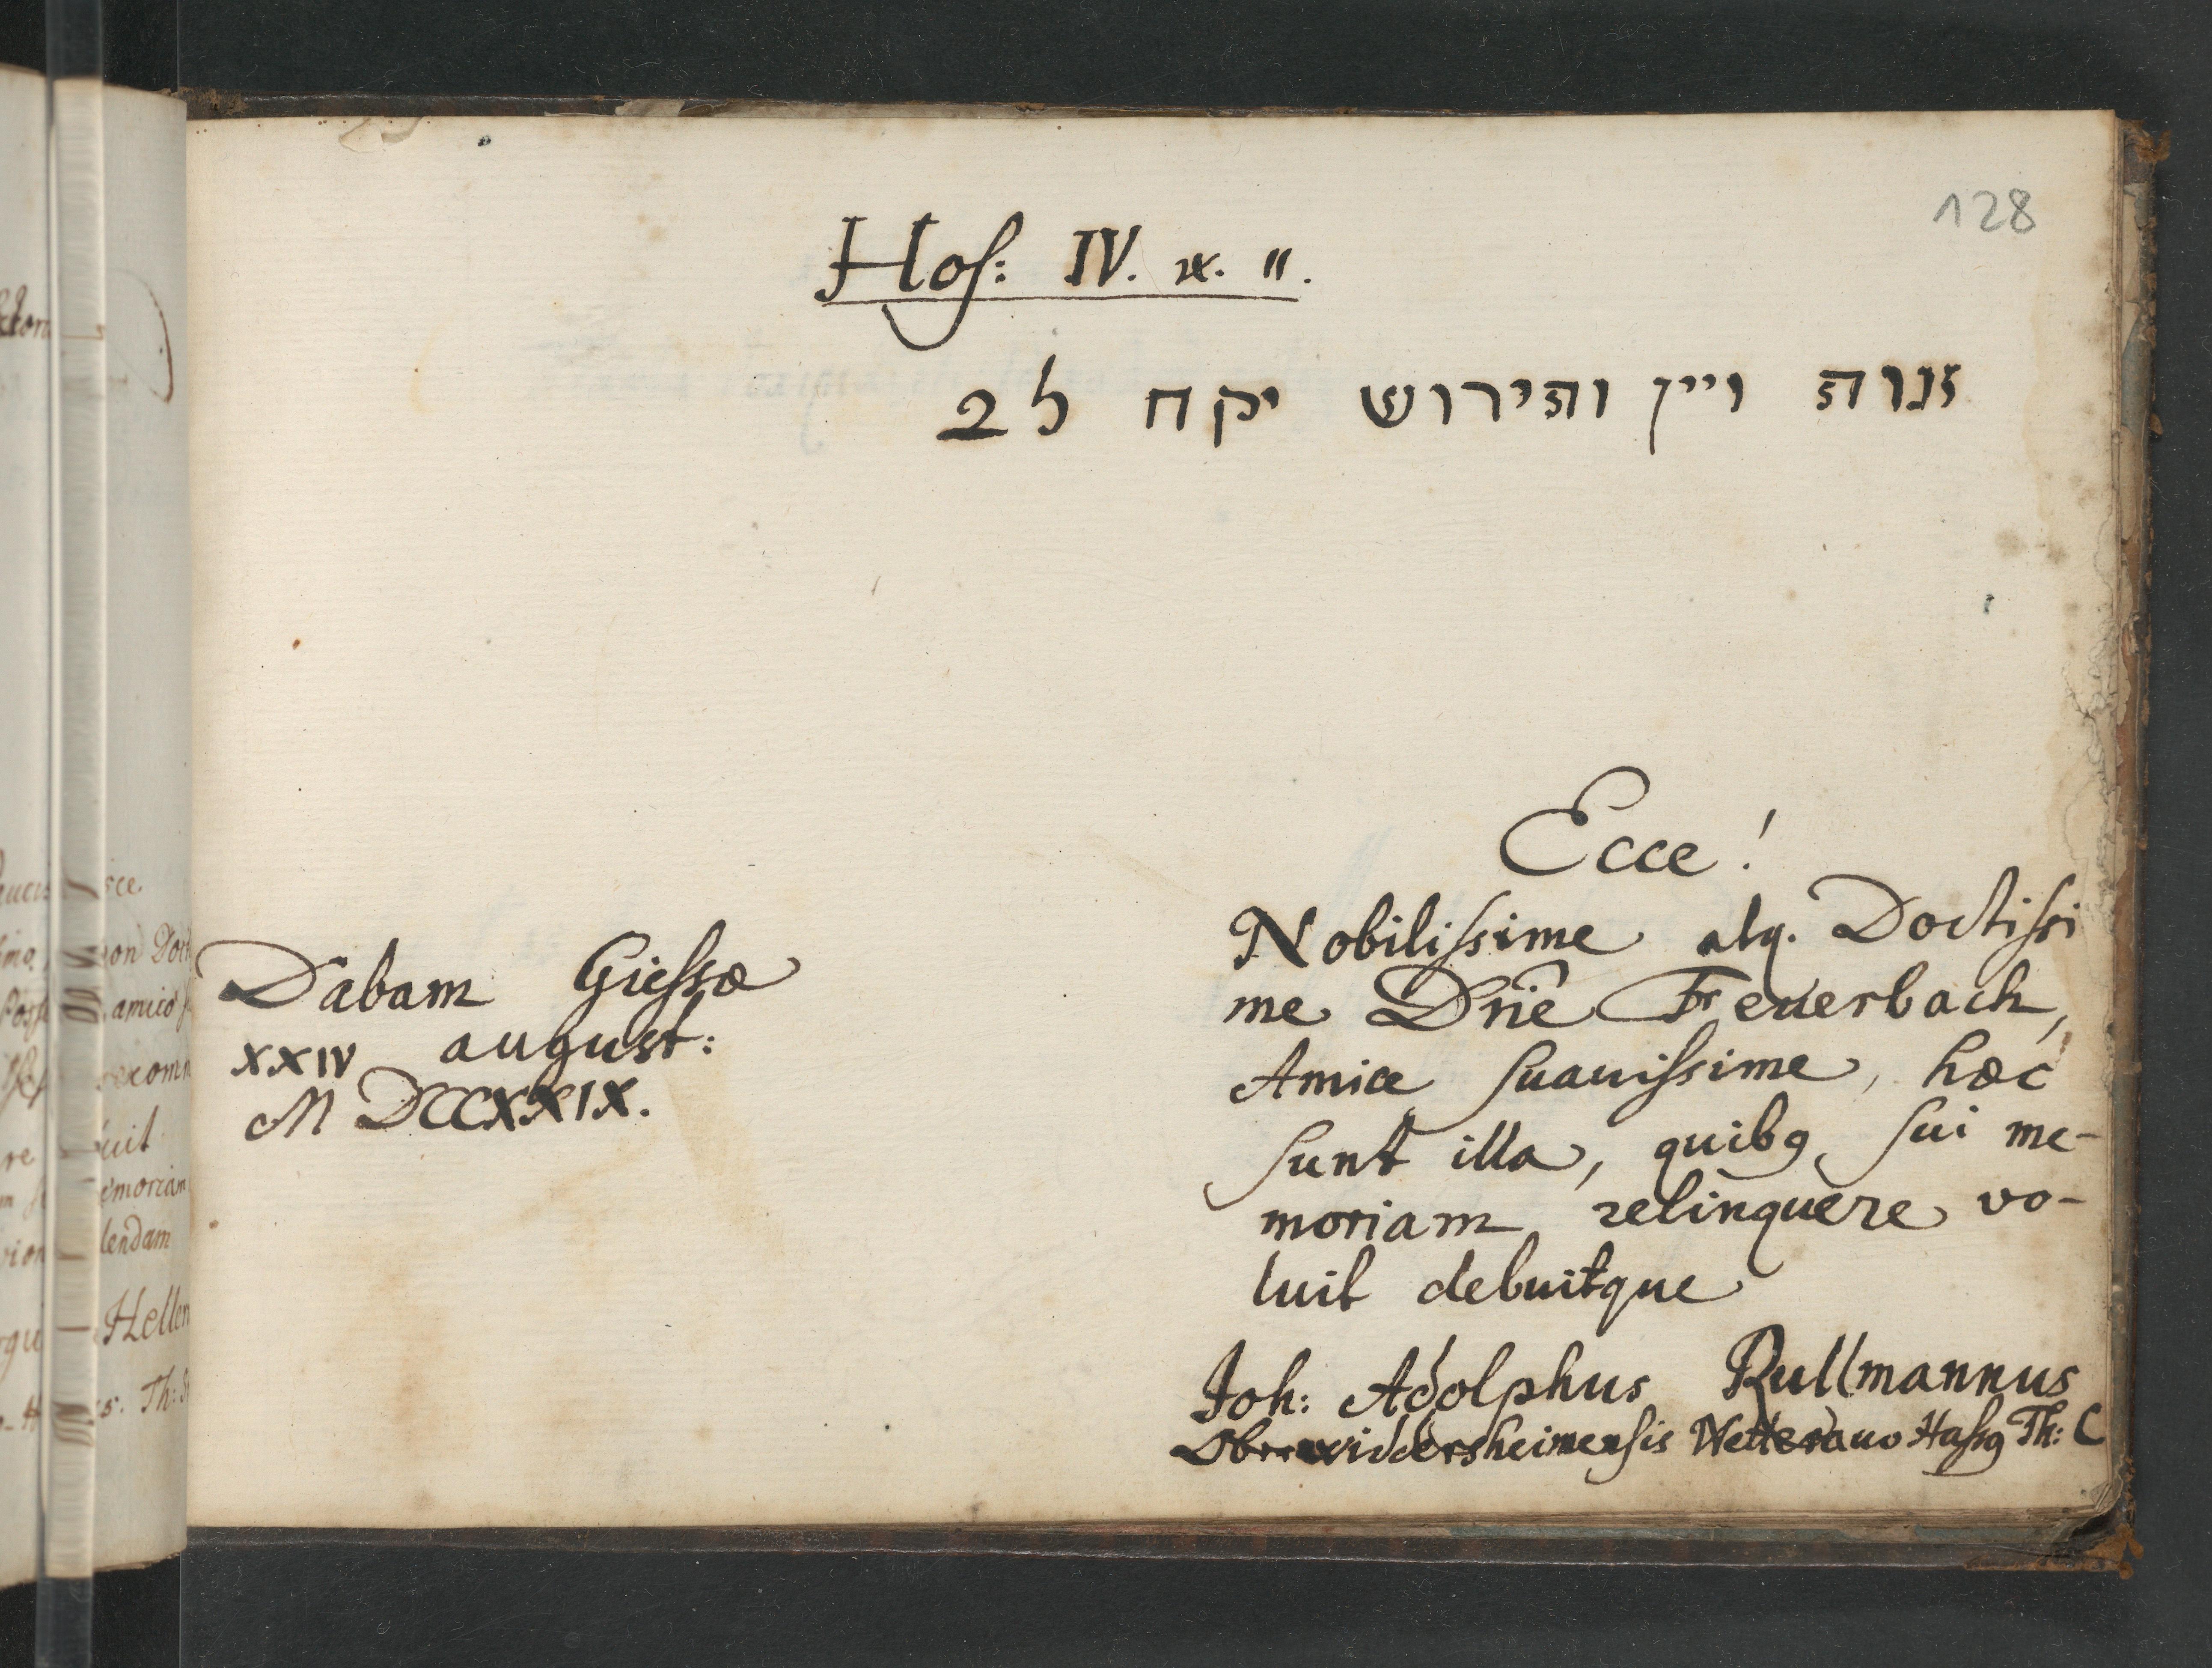 128
Hoſ: IV. ꝟ. 11.
זנוה ויין והירוש יקח לב
Ecce!
Nobiliſsime atq. Doctiſsi
me Dn̄e Feuerbach,
Amice ſuauiſsime, hæc
ſunt illa, quibꝫ ſui me-
moriam relinquere vo-
luit debuitque
Joh: Adolphus Rullmannus
Oberwiddersheimenſis Wetterauo Haſsꝫ Th: C
Dabam Gieſsæ
XXIV august:
M DCCXXIX.